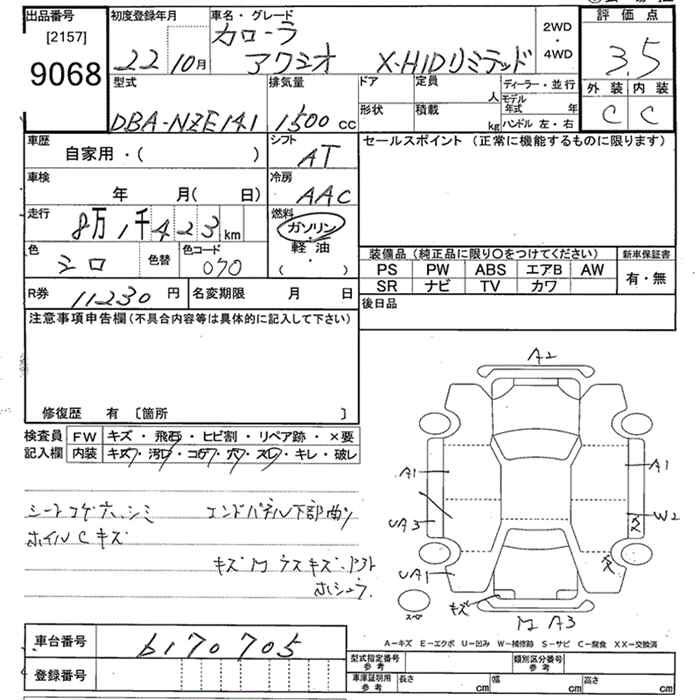 出品番号
[2157]
9068
初度登録年月
22
10月
車名・グレード
カローラ
アクシオ X-HIDリミテッド
2WD
・
4WD
評価点
3.5
外装 内装
C C
型式
DBA-NZE141
排気量
1500 cc
ドア
定員
人
形状
積載
kg
ディーラー・並行
モデル年式 年
ハンドル 左・右
車歴
自家用・( )
シフト
AT
セールスポイント (正常に機能するものに限ります)
車検
年 月( 日)
冷房
AAC
走行
8万1千423km
燃料
ガソリン
・
軽油
・
( )
色
シロ
色替
色コード
070
装備品 (純正品に限り〇をつけてください)
新車保証書
PS PW ABS エアB AW
有・無
SR ナビ TV カワ
R券
11230 円
名変期限 月 日
後日品
注意事項申告欄(不具合内容等は具体的に記入して下さい)
修復歴 有 〔箇所 〕
検査員
記入欄
FW キズ・飛石・ヒビ割・リペア跡・×要
内装 キズ・汚レ・コゲ・穴・スレ・キレ・破レ
シートコゲ穴、シミ エンドパネル下部曲リ
ホイルCキズ
A2
A1
A1
UA3
W2
UA1
キズ
スペア
A3
車台番号
6170705
登録番号
A-キズ E-エクボ U-凹み W-補修跡 S-サビ C-腐食 XX-交換済
型式指定番号
参考
類別区分番号
参考
車庫証明用
参考
長さ cm
幅 cm
高さ cm